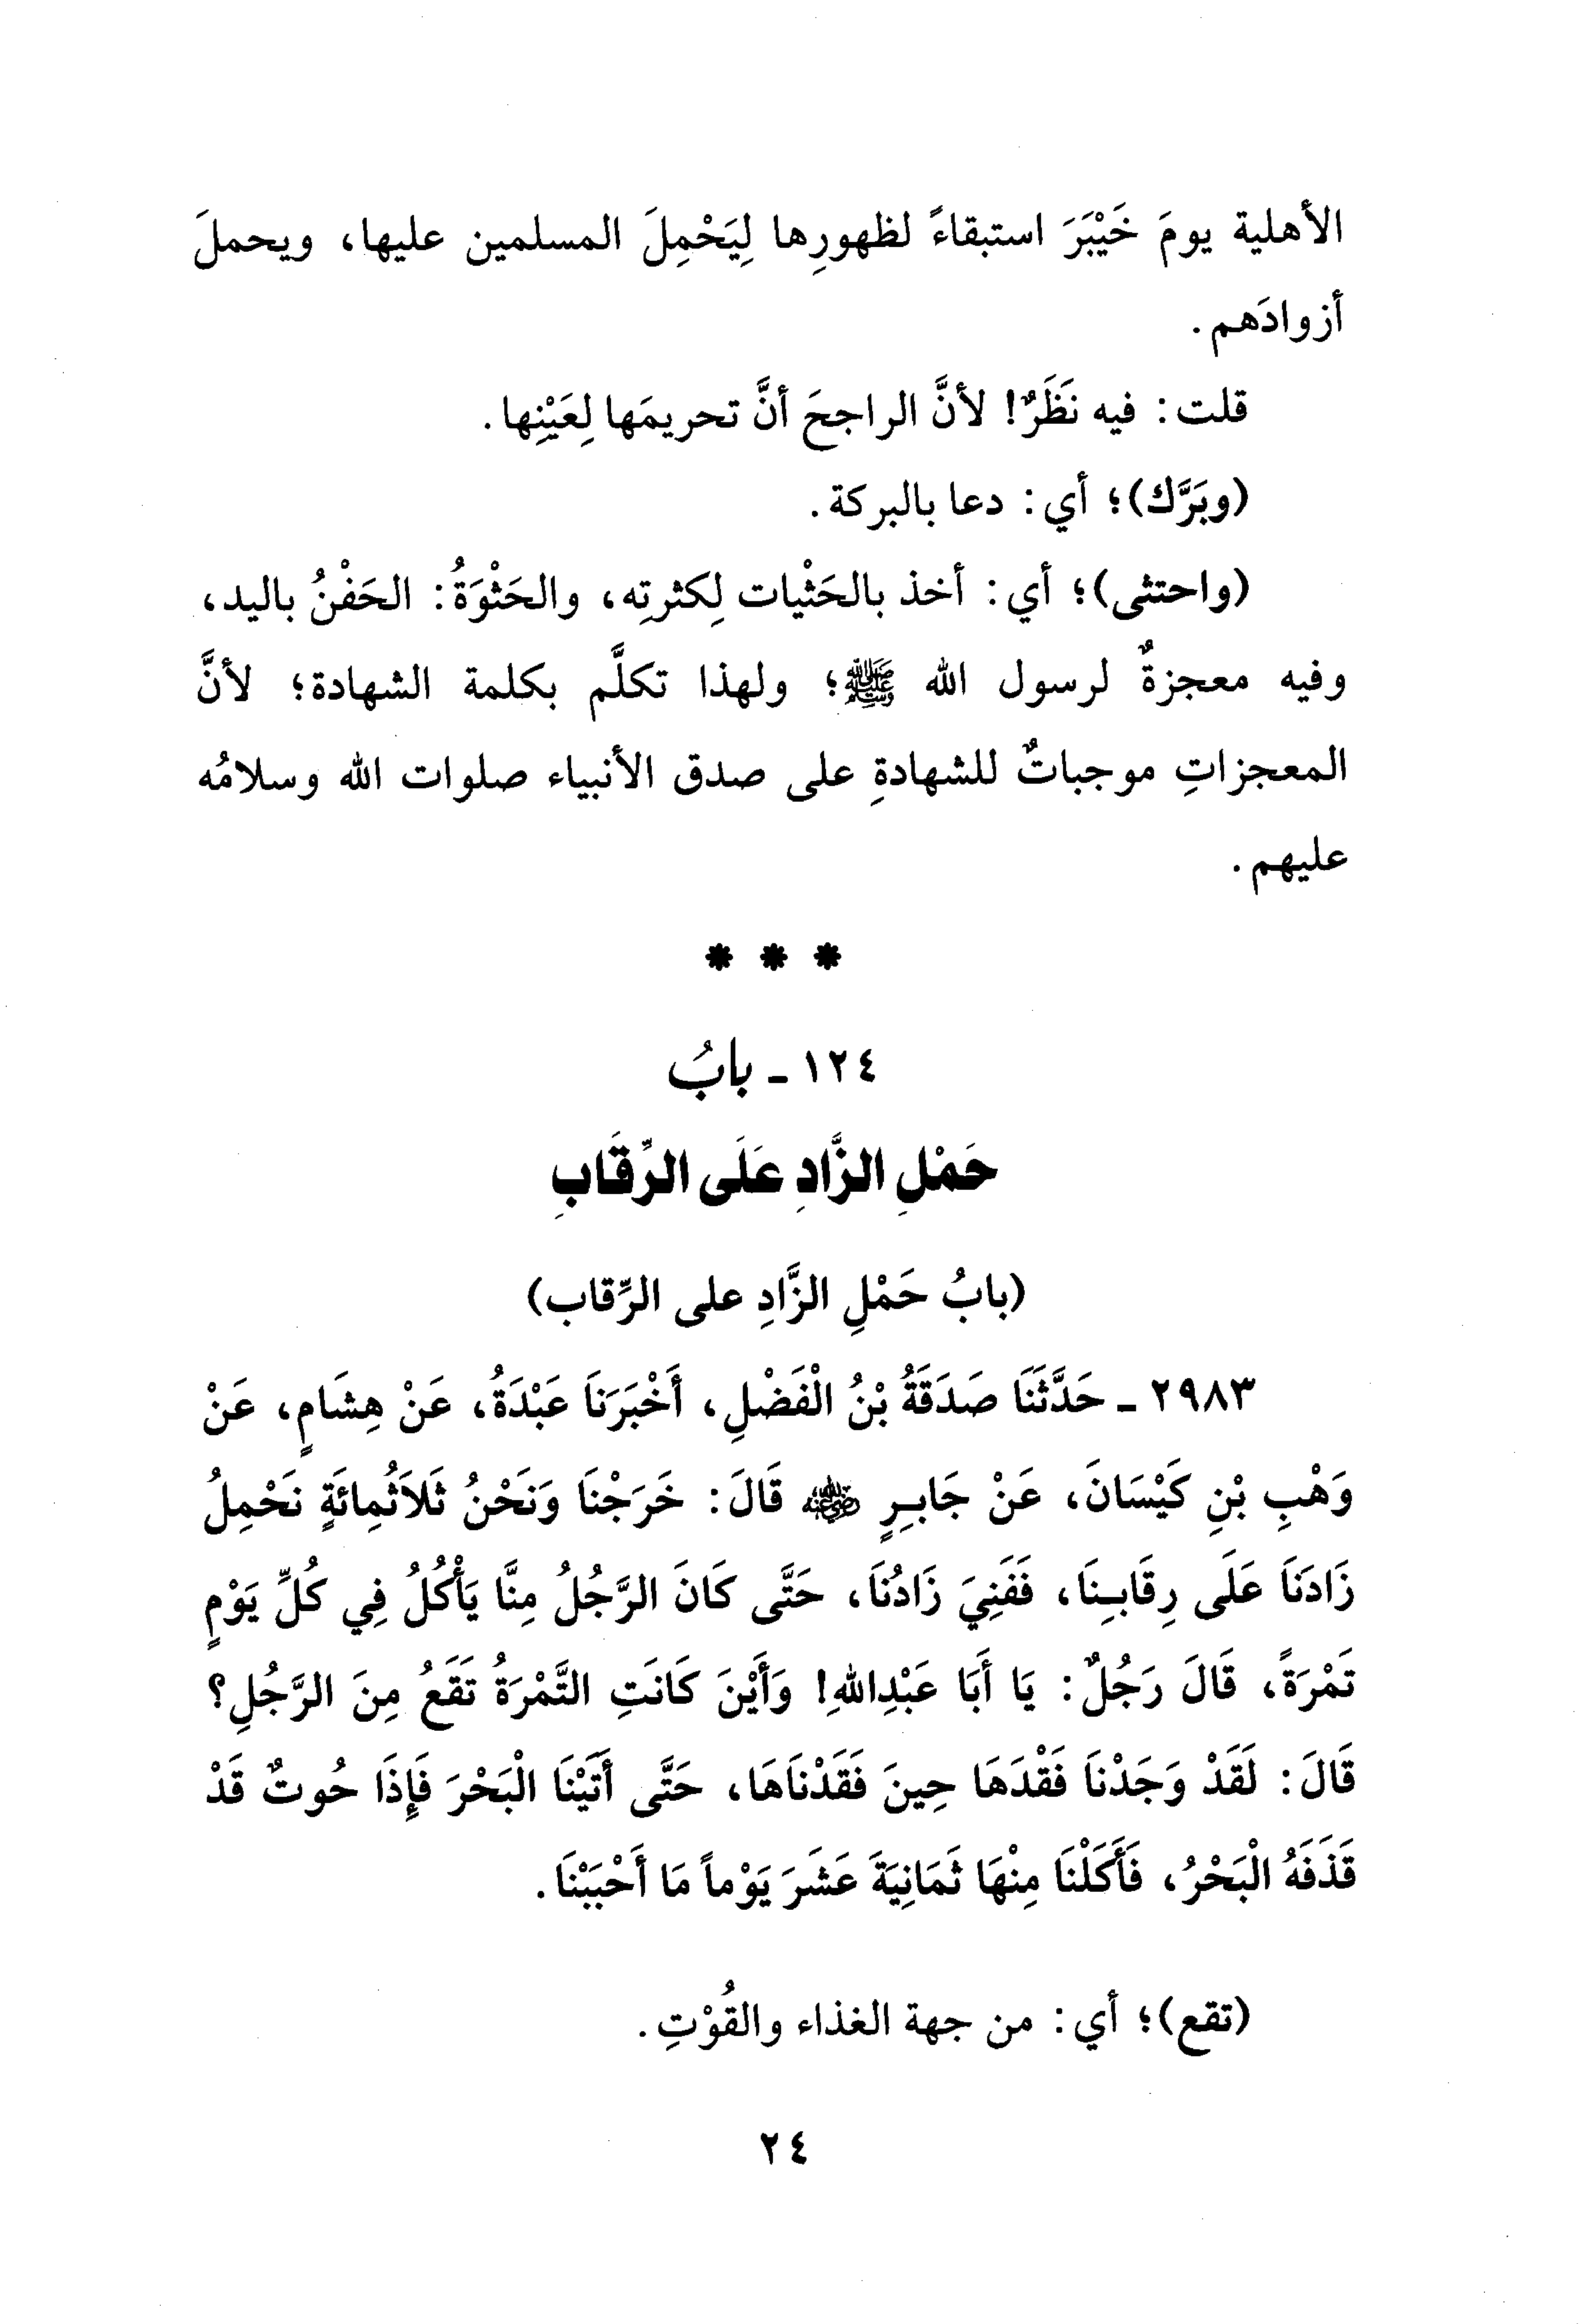 الأهلية يومَ خَيْبَرَ استبقاءً لظهورِها لِيَحْمِلَ المسلمين عليها، ويحملَ
أزوادَهم.
قلت: فيه نَظَرٌ! لأنَّ الراجحَ أنَّ تحريمَها لِعَيْنِها.
(وبَرَّك)؛ أي: دعا بالبركة.
(واحتثى)؛ أي: أخذ بالحَثْيات لِكثرتِه، والحَثْوَةُ: الحَفْنُ باليد،
وفيه معجزةٌ لرسول الله ﷺ؛ ولهذا تكلَّم بكلمة الشهادة؛ لأنَّ
المعجزاتِ موجباتٌ للشهادةِ على صدق الأنبياء صلوات الله وسلامُه
عليهم.
* * *
١٢٤ - بابُ
حَمْلِ الزَّادِ عَلَى الرِّقَابِ
(بابُ حَمْلِ الزَّادِ على الرِّقاب)
٢٩٨٣ - حَدَّثَنَا صَدَقَةُ بْنُ الْفَضْلِ، أَخْبَرَنَا عَبْدَةُ، عَنْ هِشَامٍ، عَنْ
وَهْبِ بْنِ كَيْسَانَ، عَنْ جَابِرٍ رضي الله عنه قَالَ: خَرَجْنَا وَنَحْنُ ثَلاَثُمِائَةٍ نَحْمِلُ
زَادَنَا عَلَى رِقَابِنَا، فَفَنِيَ زَادُنَا، حَتَّى كَانَ الرَّجُلُ مِنَّا يَأْكُلُ فِي كُلِّ يَوْمٍ
تَمْرَةً، قَالَ رَجُلٌ: يَا أَبَا عَبْدِاللهِ! وَأَيْنَ كَانَتِ التَّمْرَةُ تَقَعُ مِنَ الرَّجُلِ؟
قَالَ: لَقَدْ وَجَدْنَا فَقْدَهَا حِينَ فَقَدْنَاهَا، حَتَّى أَتَيْنَا الْبَحْرَ فَإِذَا حُوتٌ قَدْ
قَذَفَهُ الْبَحْرُ، فَأَكَلْنَا مِنْهَا ثَمَانِيَةَ عَشَرَ يَوْماً مَا أَحْبَبْنَا.
(تقع)؛ أي: من جهة الغذاء والقُوْتِ.
٢٤